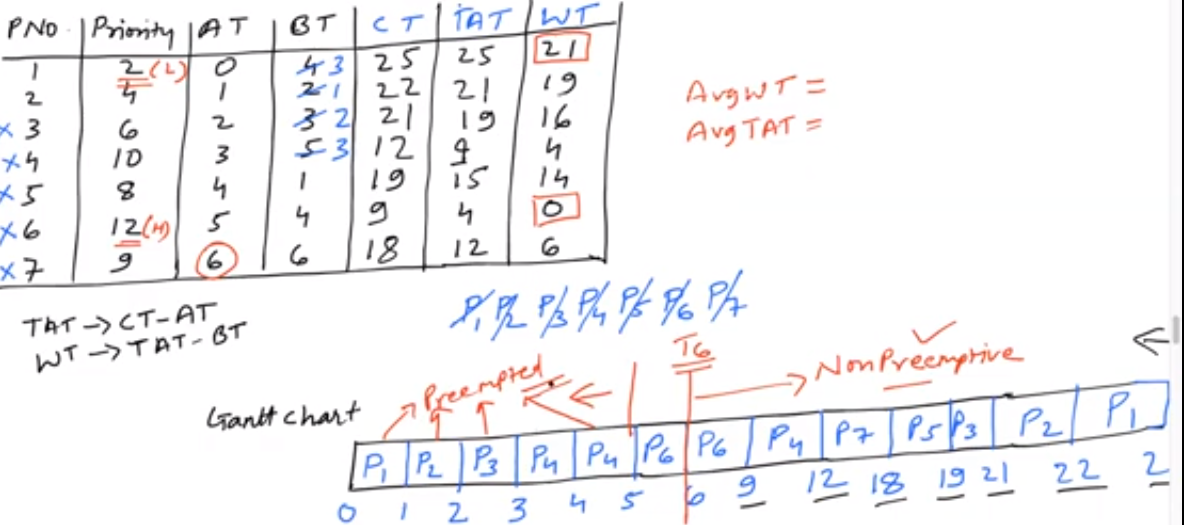 PNO Priority AT BT CT TAT WT
1 2(L) 0 4 3 25 25 21
2 4 1 2 1 22 21 19
x 3 6 2 3 2 21 19 16
x 4 10 3 5 3 12 9 4
x 5 8 4 1 19 15 14
x 6 12(H) 5 4 9 4 0
x 7 9 6 6 18 12 6
AvgWT =
AvgTAT =
TAT → CT-AT
WT → TAT-BT
P1 P2 P3 P4 P5 P6 P7
Preempted
T6
NonPreemptive
Gantt chart
P1 P2 P3 P4 P4 P6 P6 P4 P7 P5 P3 P2 P1
0 1 2 3 4 5 6 9 12 18 19 21 22 2